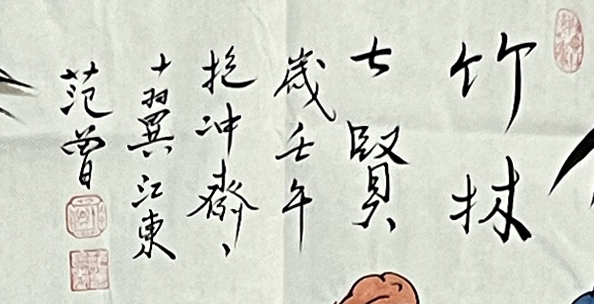 竹林
七賢
歲壬午
抱冲齋、
十翼江東
范曾